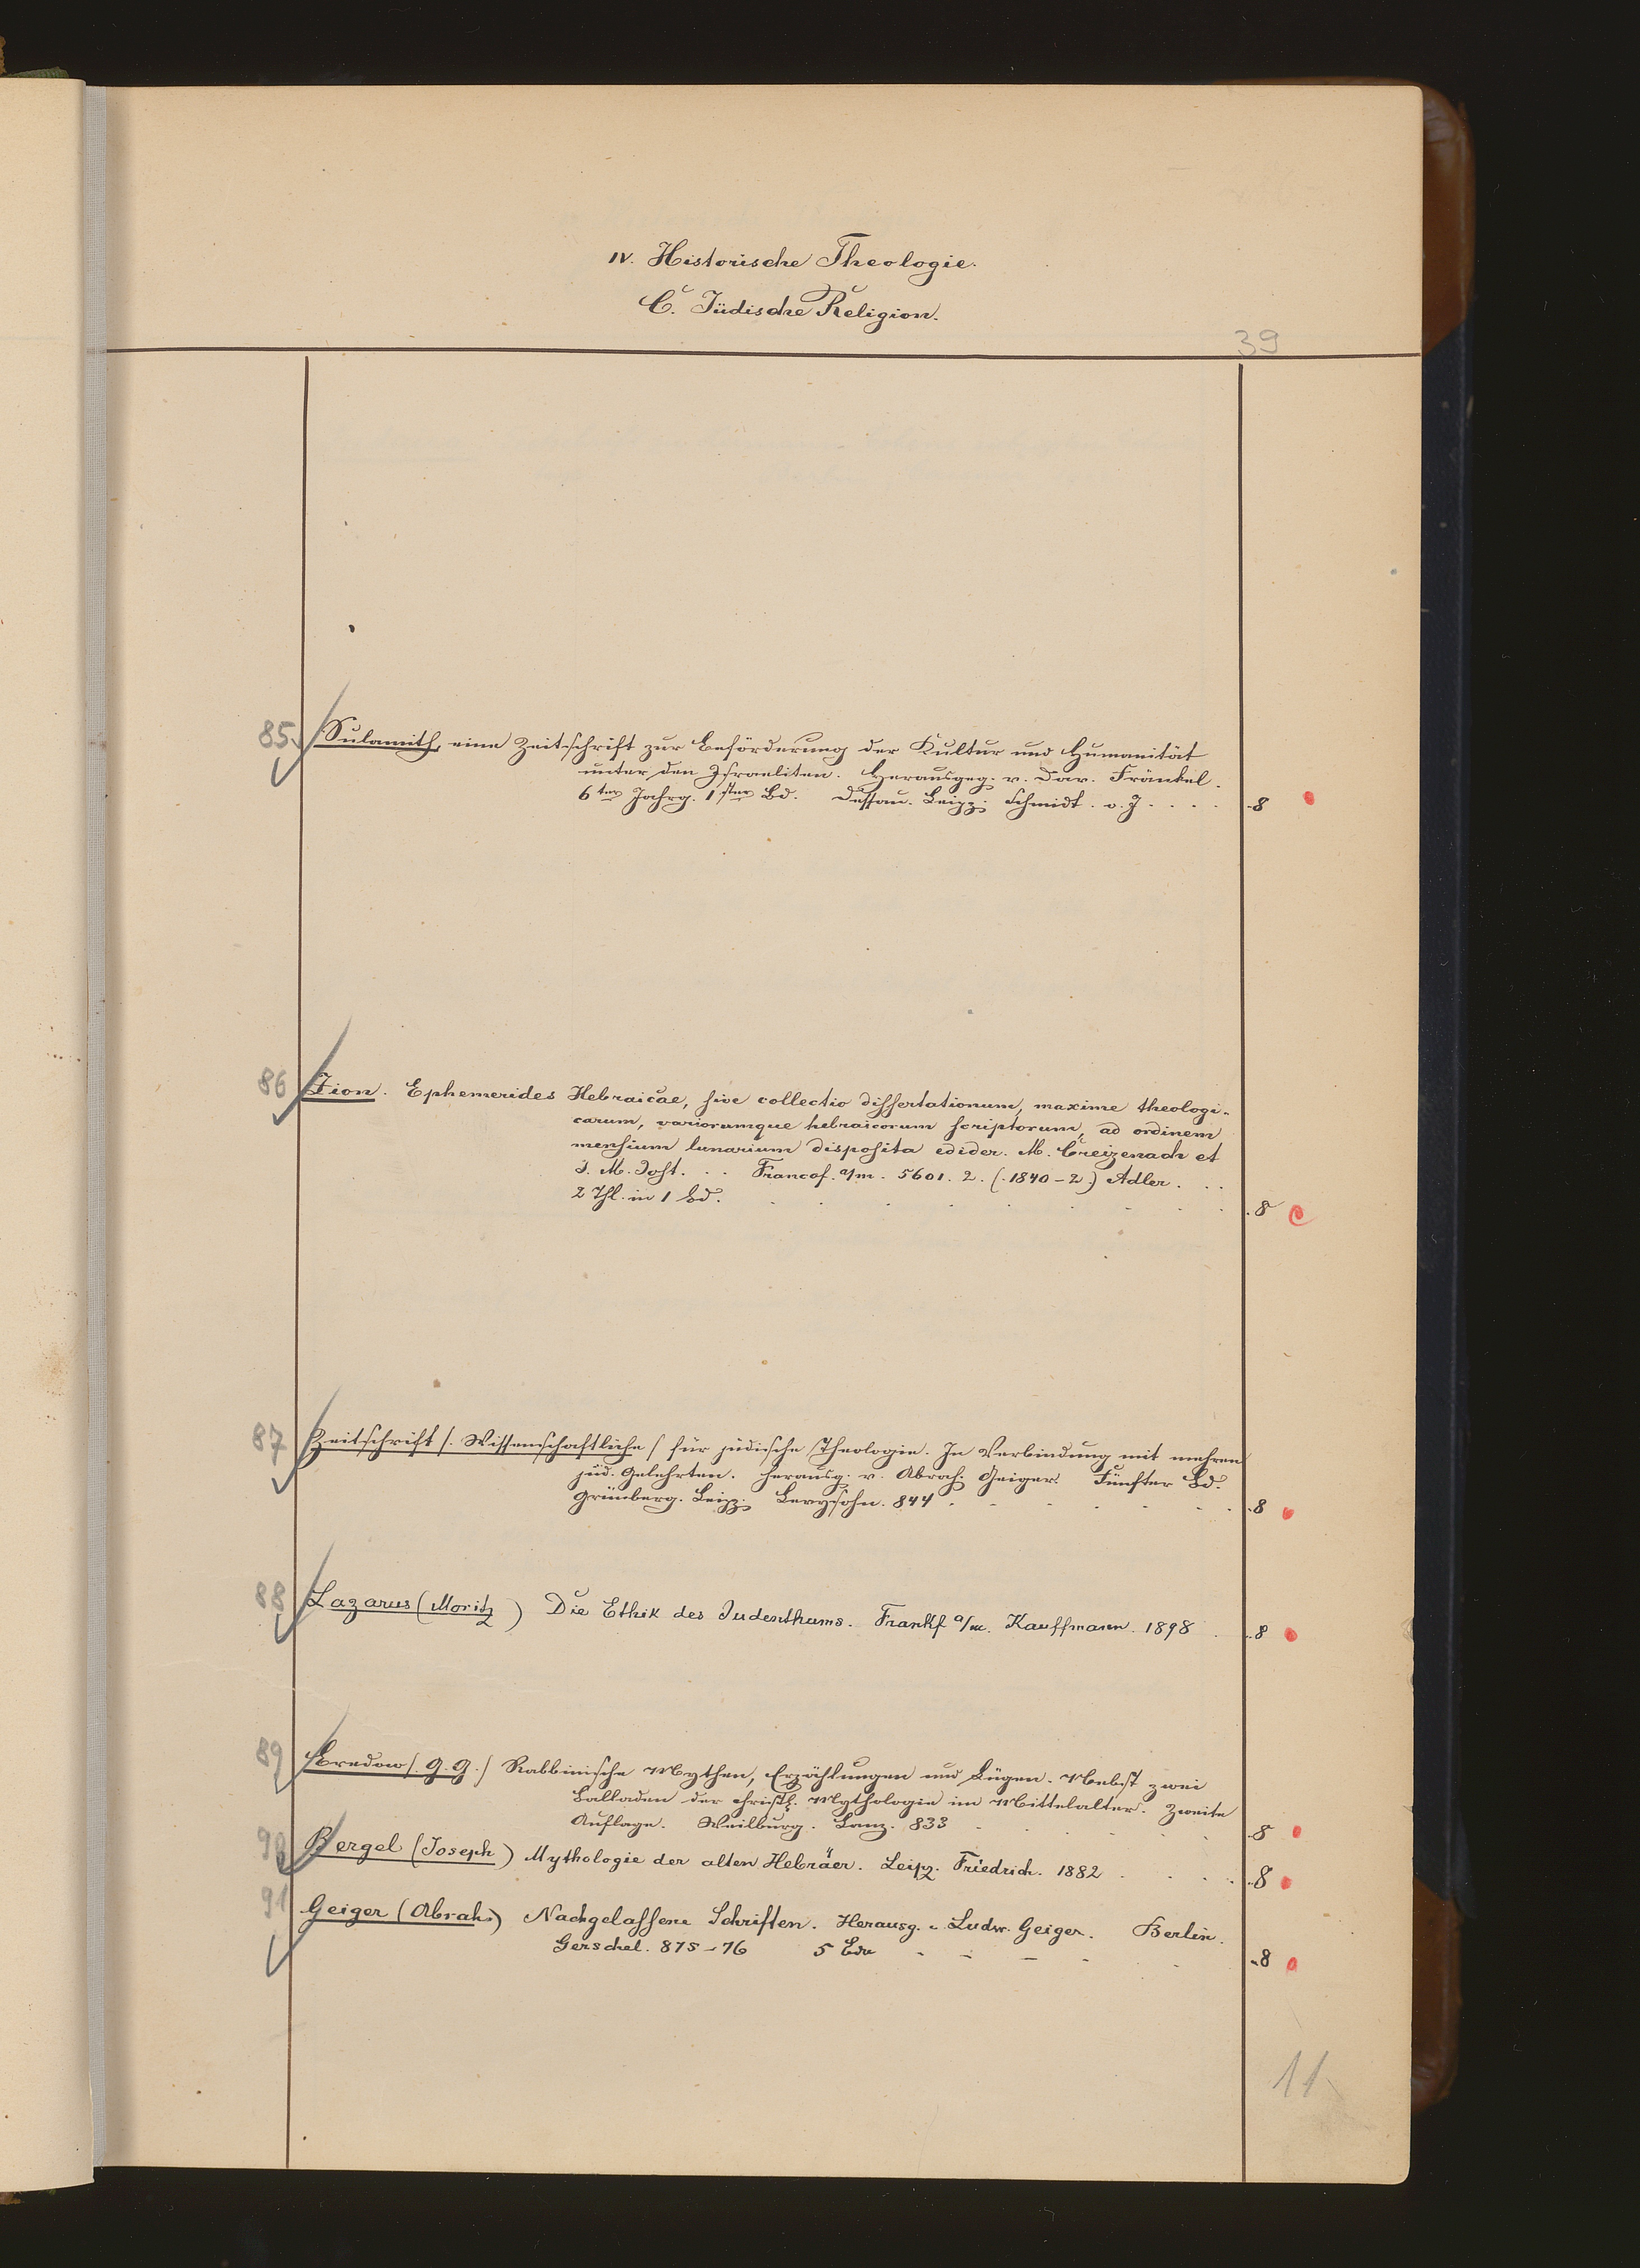 IV. Historische Theologie.
C. Jüdische Religion.
39
85. Sulamith, eine Zeitschrift zur Beförderung der Kultur und Humanität
unter den Israeliten. Herausgeg. v. Dav. Fränkel.
6ter Jahrg. 1ster Bd. Dessau. Leipz. Schmidt. o. J. . . . . 8
86 Zion. Ephemerides Hebraicae, sive collectio dissertationum, maxime theologi-
carum, variorumque hebraicorum scriptorum, ad ordinem
mensium lunarium disposita edider. M. Creizenach et
J. M. Jost. . . Francof. a/m. 5601. 2. (.1840-2.) Adler. . .
2 Thl. in 1 Bd. . . . . . . . . 8
87 Zeitschrift /. Wissenschaftliche / für jüdische Theologie. In Verbindung mit mehren
jüd. Gelehrten. herausg. v. Abrah. Geiger. Fünfter Bd.
Grünberg. Leipz. Levysohn. 844 . . . . . . . 8
88 Lazarus (Moritz) Die Ethik des Judenthums. Frankf a/m. Kauffmann. 1898 . . 8
89 Bredow /. G. G. / Rabbinische Mythen, Erzählungen und Lügen. Nebst zwei
Balladen der christl. Mythologie im Mittelalter. Zweite
Auflage. Weilburg. Lanz. 833 . . . . . . 8
90 Bergel (Joseph) Mythologie der alten Hebräer. Leipz. Friedrich. 1882 . . . . . 8
91 Geiger (Abrah.) Nachgelassene Schriften. Herausg. v. Ludw. Geiger. Berlin.
Gerschel. 875-76 5 Bde - - - - . . 8
11